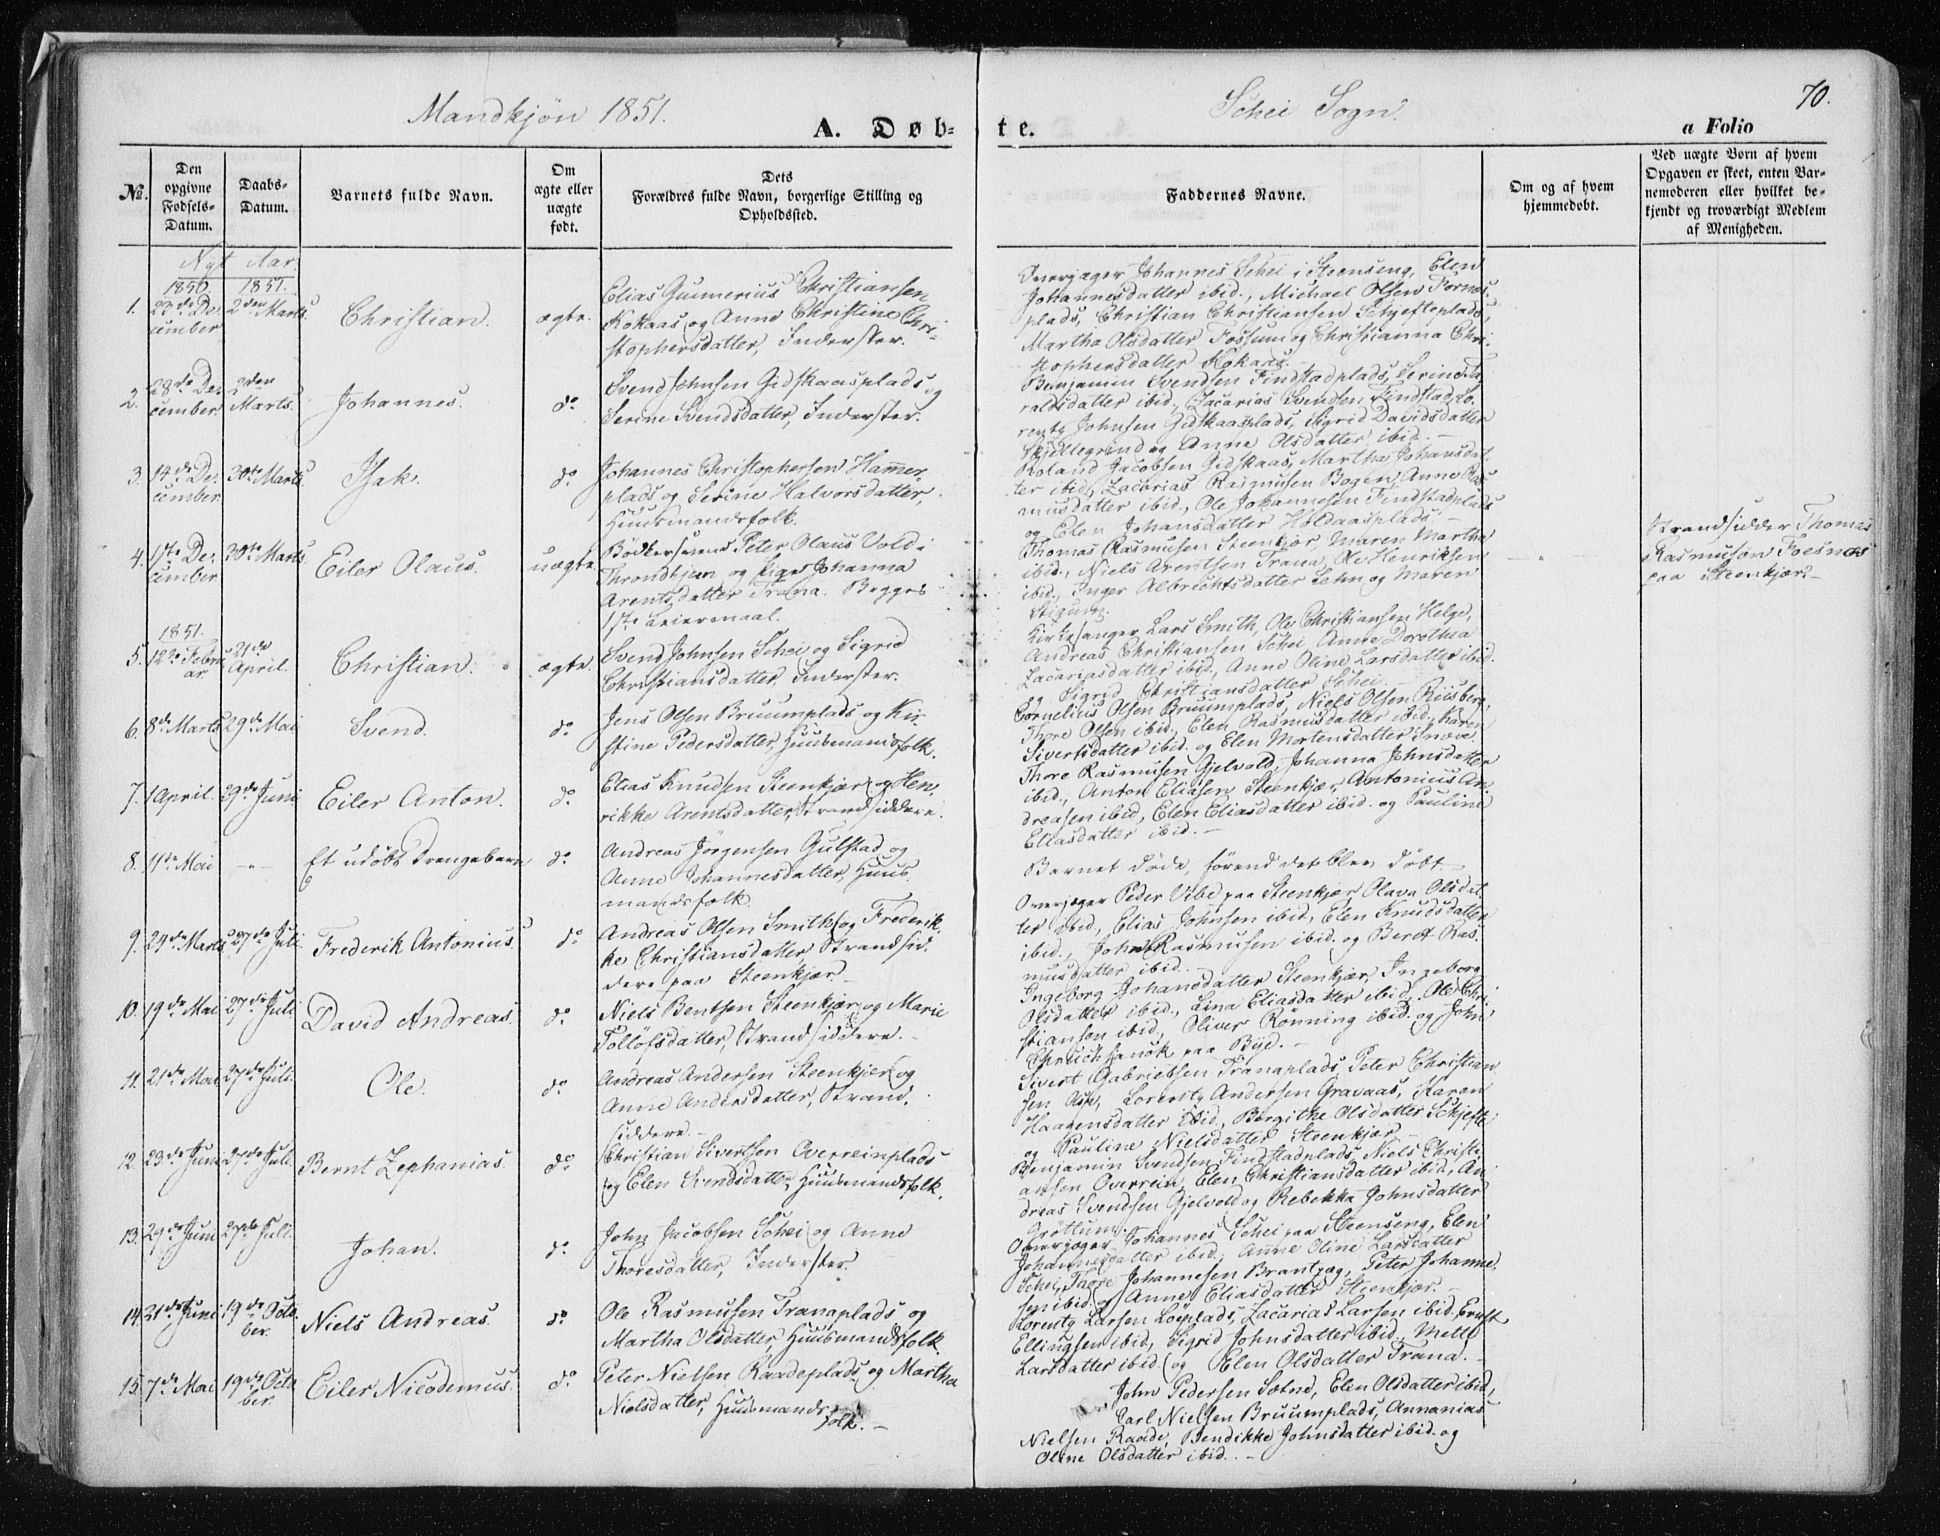 Mandkjøn 1851.
Schei Sogn.
70.
A. Døb-
te.
a Folio
№.
Den opgivne Fødsels-Datum.
Daabs-Datum.
Barnets fulde Navn.
Om ægte eller uægte født.
Dets
Forældres fulde Navn, borgerlige Stilling og
Opholdssted.
Faddernes Navne.
Om og af hvem
hjemmedøbt.
Ved uægte Børn af hvem
Opgaven er skeet, enten Bar-
nemoderen eller hvilket be-
kjendt og troværdigt Medlem
af Menigheden.
Nyt Aar.
1850. 1851.
1. 23de De-
cember 2den Marts. Christian. ægte.
Elias Gunnerius Christiansen
Kokaas og Anne Christine Chri-
stophersdatter, Inderster.
Overjæger Johannes Schei i Steenseng, Elen
Johannesdatter ibid., Michael Olsen Fornes-
plads, Christian Christiansen Schjefteplads,
Martha Olsdatter Fossum og Christianna Chri-
stophersdatter Kokaas.
2. 28de De-
cember 2den Marts. Johannes. do
Svend Johnsen Gidskaasplads og
Serine Svendsdatter, Inderster.
Benjamin Svendsen Findstadplads, Serine
raldsdatter ibid., Zacarias Svendsen Findstad, Lo-
rentz Johnsen Gidskaasplads, Sigrid Davidsdatter
Skjellegrind og Anne Olsdatter ibid. -
3. 14de De-
cember 30te Marts Isak. do
Johannes Christophersen Hammer-
plads og Serine Halvorsdatter,
Huusmandsfolk.
Roland Jacobsen Gidskaas, Martha Johansdat-
ter ibid, Zacarias Rasmusen Bogen, Anne Ras-
musdatter ibid., Ole Johannesen Findstadplads
og Elen Johansdatter Holdaasplads -
4. 1ste De-
cember 30te Marts Eiler Olaus. uægte.
Bödkersvend Peter Olaus Vold i
Throndhjem og Pige Johanna
Arentsdatter Trana. Begges
1ste Leiermaal.
Thomas Rasmusen Steenkjær, Maren Martha
ibid., Niels Arentsen Trana, Ole Henriksen
ibid., Inger Albrechtsdatter Lehn og Maren
Stigum.
Strandsidder Thomas
Rasmuson Foesnæs
paa Steenkjær. -
1851.
5. 12te Febru-
ar 21de April. Christian. ægte.
Svend Johnsen Schei og Sigrid
Christiansdatter, Inderster.
Kirkesanger Lars Smith, Ole Christiansen Helge,
Andreas Christiansen Schei, Anne Dorothea
Zacariasdatter ibid., Anne Oline Larsdatter ibid.
og Sigrid Christiansdatter Schei.
6. 8de Marts 29de Mai Svend. do
Jens Olsen Bruumplads og Kir-
stine Pedersdatter, Huusmandsfolk.
Cornelius Olsen Bruumplads, Niels Olsen Riisberg,
Thore Olsen ibid., Elen Rasmusdatter ibid., Karen
Sivertsdatter ibid. og Elen Mortensdatter Snøve
7. 1 April. 29de Juni Eiler Anton. do.
Elias Knudsen Steenkjær og Hen-
rikke Arentsdatter, Strandsiddere.
Thore Rasmusen Gjelvold, Johanna Johnsdatter
ibid., Anton Eliasen Steenkjær, Antonius An-
dreasen ibid, Elen Eliasdatter ibid. og Pauline
Eliasdatter ibid. -
8. 11te Mai - " - Et udöbt Drengebarn do
Andreas Jörgensen Gulstad og
Anne Johannesdatter, Huus-
mandsfolk.
Barnet døde, førend det blev døbt.
9. 24de Marts 27de Juli. Frederik Antonius. do
Andreas Olsen Smith og Frederik-
ke Christiansdatter, Strandsid-
dere paa Steenkjær.
Overjæger Peder Vibe paa Steenkjær, Olava Olsdat-
ter ibid, Elias Johnsen ibid, Elen Knudsdatter
ibid., John Rasmusen ibid. og Beret Ras-
musdatter ibid.
10. 19de Mai 27de Juli David Andreas. do
Niels Bentsen Steenkjær og Marie
Tollöfsdatter, Strandsiddere. -
Ingeborg Johansdatter Steenkjær, Ingeborg
Olsdatter ibid., Lina Eliasdatter ibid., Ole Chri-
stiansen ibid., Oliver Rönning ibid. og John
paa Bye. -
11. 21de Mai 27de Juli. Ole. do
Andreas Andersen Steenkjær og
Anne Andersdatter, Strand-
siddere. -
Sivert Gabrielsen Tranaplads, Peter Christian-
sen Asp, Lorentz Andersen Gravaas, Karen
Haagensdatter ibid., Bergithe Olsdatter Schjefte
og Pauline Nielsdatter Steenkjær -
12. 23de Juni 27de Juli Bernt Zephanias. do
Christian Sivertsen Overreinplads
og Elen Svendsdatter, Huusmandsfolk.
Benjamin Svendsen Findstadplads, Niels Christi-
ansen Overrein, Elen Christiansdatter ibid, An-
dreas Svendsen Gjelvold og Rebekka Johnsdatter
Grøttum.
13. 29de Juni 27de Juli. Johan. do.
John Jacobsen Schei og Anne
Thoresdatter, Inderster.
Overjæger Johannes Schei paa Steenseng, Elen
Johannesdatter ibid, Anne Oline Larsdatter
Schei, Thore Johannesen Brantzæg, Peter Johanne-
sen ibid. og Anne Eliasdatter Steenkjær. -
14. 21de Juni 19de Octo-
ber. Niels Andreas. do
Ole Rasmusen Tranaplads og
Martha Olsdatter, Huusmandsfolk.
Lorentz Larsen Löeplads, Zacarias Larsen ibid. Ernst
Ellingsen ibid, Sigrid Johnsdatter ibid., Mette
Larsdatter ibid. og Elen Olsdatter Trana. -
15. 7de Mai 19de Octo-
ber. Eiler Nicodemus. do
Peter Nielsen Raadeplads og Martha
Nielsdatter, Huusmands-
folk. -
John Pedersen Sætne, Elen Olsdatter ibid,
Carl Nielsen Bruumplads, Annanias
Nielsen Raade, Bendikke Johnsdatter ibid. og
Oline Olsdatter ibid. -